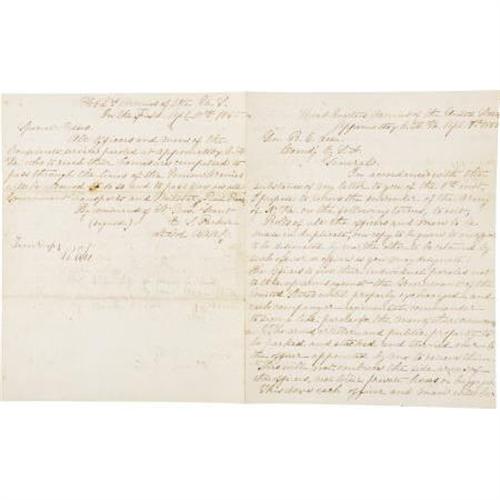 Hd Qrs Armies of the U. S.
In the Field Apl 10th 1865
Special Orders
All officers and men of the
Confederate service paroled at Appomattox C. H.
Va. who to reach their homes are compelled to
pass through the lines of the Union Armies
will be allowed to do so and to pass free on all
Government Transports and Military Rail Roads
By command of Lt. Gen. Grant
(signed) E. S. Parker
A. A. G.
Head Quarters Armies of the United States
Appomattox C. H. Va. Apl. 9th 1865
Gen R. E. Lee
Comdg C. S. A.
General
In accordance with the
substance of my letter to you of the 8th inst.
I propose to receive the surrender of the Army
of N. Va. on the following terms, to wit,
Rolls of all the officers and men to be
made in duplicate, one copy to be given to an officer
to be designated by me the other to be retained by
such officer or officers as you may designate.
The officers to give their individual paroles not
to take up arms against the Government of the
United States until properly exchanged and
each company or regimental commander
to sign a like parole for the men of their command
The arms, artillery and public property to
be parked and stacked and turned over to
the officer appointed by me to receive them
This will not embrace the side arms of
the officers, nor their private horses or baggage
This done each officer and man will be